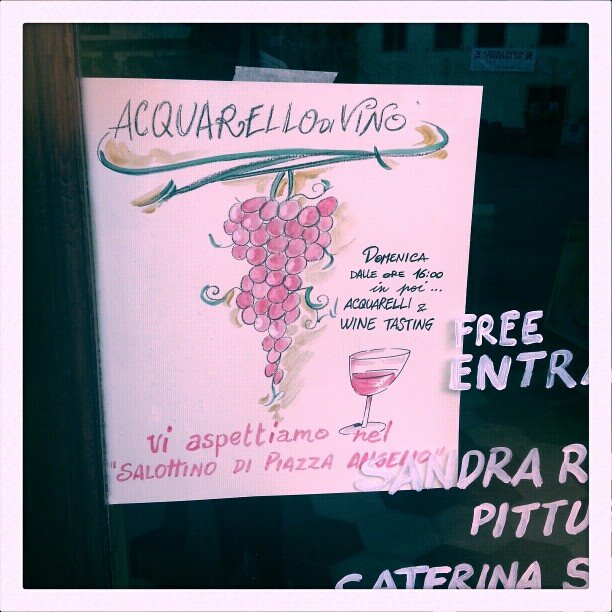 ACQUARELLO DI VINO
DOMENICA
DALLE ORE 16:00
in poi...
ACQUARELLI &
WINE TASTING
vi aspettiamo nel
"SALOTTINO DI PIAZZA ANGELIO"
FREE
ENTRA
SANDRA R
PITTU
CATERINA S